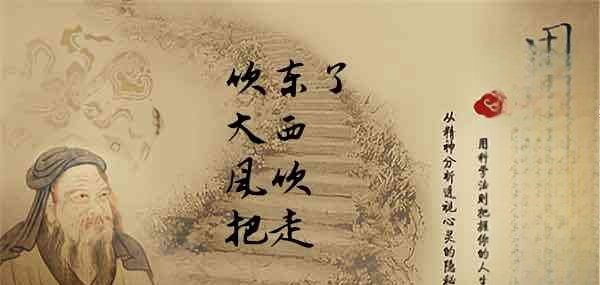 吹大风把
东西吹走
了
用科学法则把握你的人生
从精神分析透视心灵的隐秘